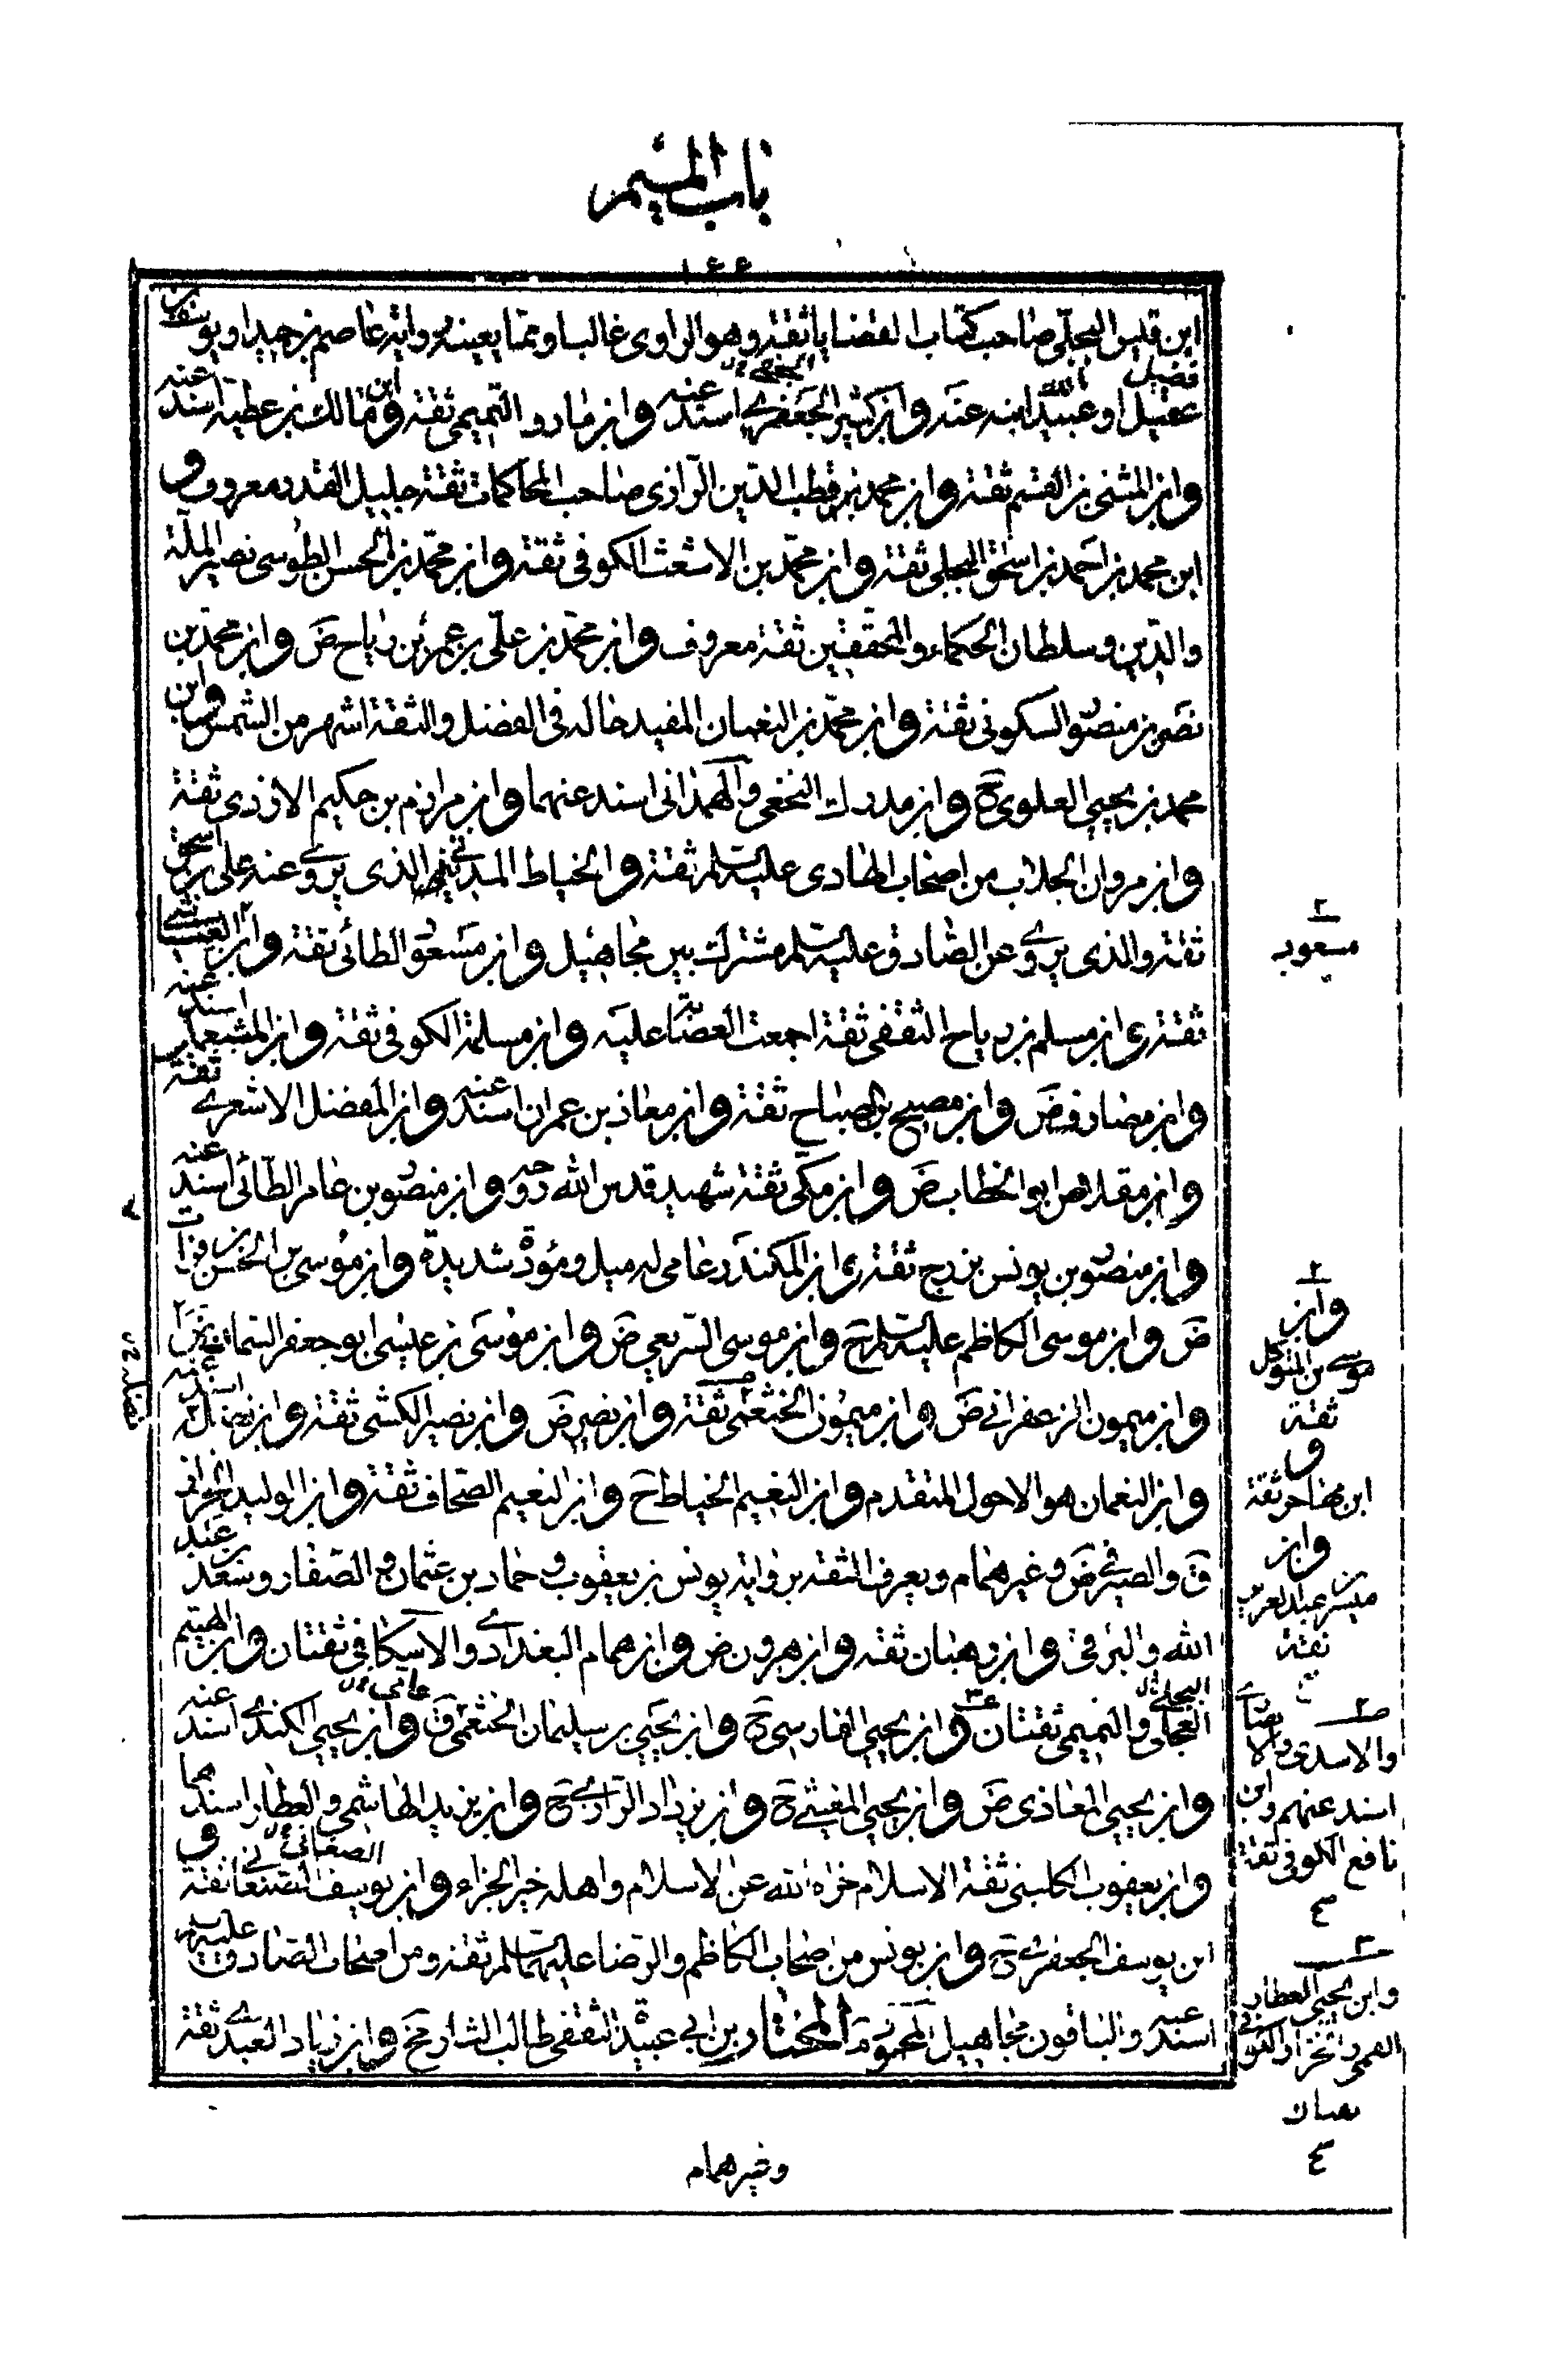 باب الميم
١٤٤
ابن قيس البجلي صاحب كتاب القضايا ثقة وهو الراوي غالبا ومما يعينه رواية عاصم بن حميد او يوسف بن
عقيل او عبيد ابنه عنه وابن كثير الجعفري اسند عنه وابن مارد التميمي ثقة وابن مالك بن عطية اسند عنه
وابن المثنى بن القسم ثقة وابن محمد بن قطب الدين الرازي صاحب المحاكمات ثقة جليل القدر معروف و
ابن محمد بن احمد بن اسحق البجلي ثقة وابن محمد بن الاشعث الكوفي ثقة وابن محمد بن الحسن الطوسي نصير الملة
والدين وسلطان الحكماء والمحققين ثقة معروف وابن محمد بن علي بن عمر بن رباح ض وابن محمد بن
نصر بن منصور السكوني ثقة وابن محمد بن النعمان المفيد حاله في الفضل والثقة اشهر من الشمس وابن
محمد بن يحيى العلوي ح وابن مدرك النخعي والهمداني اسند عنهما وابن مرازم بن حكيم الازدي ثقة
وابن مروان الجلاب من اصحاب الهادي عليه السلم ثقة والخياط المديني الذي يروي عنه علي بن اسحق
ثقة والذي يروي عن الصادق عليه السلم مشترك بين مجاهيل وابن مسعود الطائي ثقة وابن العياشي
ثقة وابن مسلم بن رباح الثقفي ثقة اجمعت العصابة عليه وابن مسلمة الكوفي ثقة وابن المشمعل اسند عنه
وابن مصادف ض وابن مصبح بن الصباح ثقة وابن معاذ بن عمران اسند عنه وابن المفضل الاشعري ثقة
وابن مقلاص ابو الخطاب ض وابن مكي ثقة شهيد قدس الله روحه وابن منصور بن عامر الطائي اسند عنه
وابن منصور بن يونس بزرج ثقة وابن المكندر عامي له ميل ومودة شديدة وابن موسى بن الحسن بن فرات
ض وابن موسى الكاظم عليه السلم ح وابن موسى السريعي ض وابن موسى بن عيسى ابو جعفر السمان ض
وابن ميمون الزعفراني ض وابن ميمون الخثعمي ثقة وابن نصير ض وابن نصير الكشي ثقة وابن نضلة اسند عنه
وابن النعمان هو الاحول المتقدم وابن النعيم الخياط ح وابن النعيم الصحاف ثقة وابن الوليد الخزاز
ق والصيرفي ض وغيرهما م ويعرف الثقة برواية يونس بن يعقوب وحماد بن عثمان والصفار وسعد بن عبد
الله والبرقي وابن وهبان ثقة وابن هرون ض وابن همام البغدادي والاسكافي ثقتان وابن الهيثم
العجلي والتميمي ثقتان وابن يحيى الفارسي ح وابن يحيى بن سليمان الخثعمي ق وابن يحيى الكندي اسند عنه
وابن يحيى المعاذي ض وابن يحيى المغيثي ح وابن يزداد الرازي ح وابن يزيد الهاشمي والعطار اسند عنهما
وابن يعقوب الكليني ثقة الاسلام جزاه الله عن الاسلام واهله خير الجزاء وابن يوسف الصنعاني ثقة و
ابن يوسف الجعفري ق وابن يونس من اصحاب الكاظم والرضا عليهما السلم ثقة ومن اصحاب الصادق عليه السلم
اسند عنه والباقون مجاهيل المختار بن ابي عبيد الثقفي طالب الثار ح وابن زياد العبدي ثقة
وغيرهما م
مسعود
وابن
موسى بن المتوكل
ثقة
و
ابن مهاجر ثقة
وابن
ميسر بن عبد العزيز
ثقة
والاسدي
اسند عنهم وابن
نافع الكوفي ثقة
وابن يحيى العطار
القمي والخزاز الكوفي
ثقتان